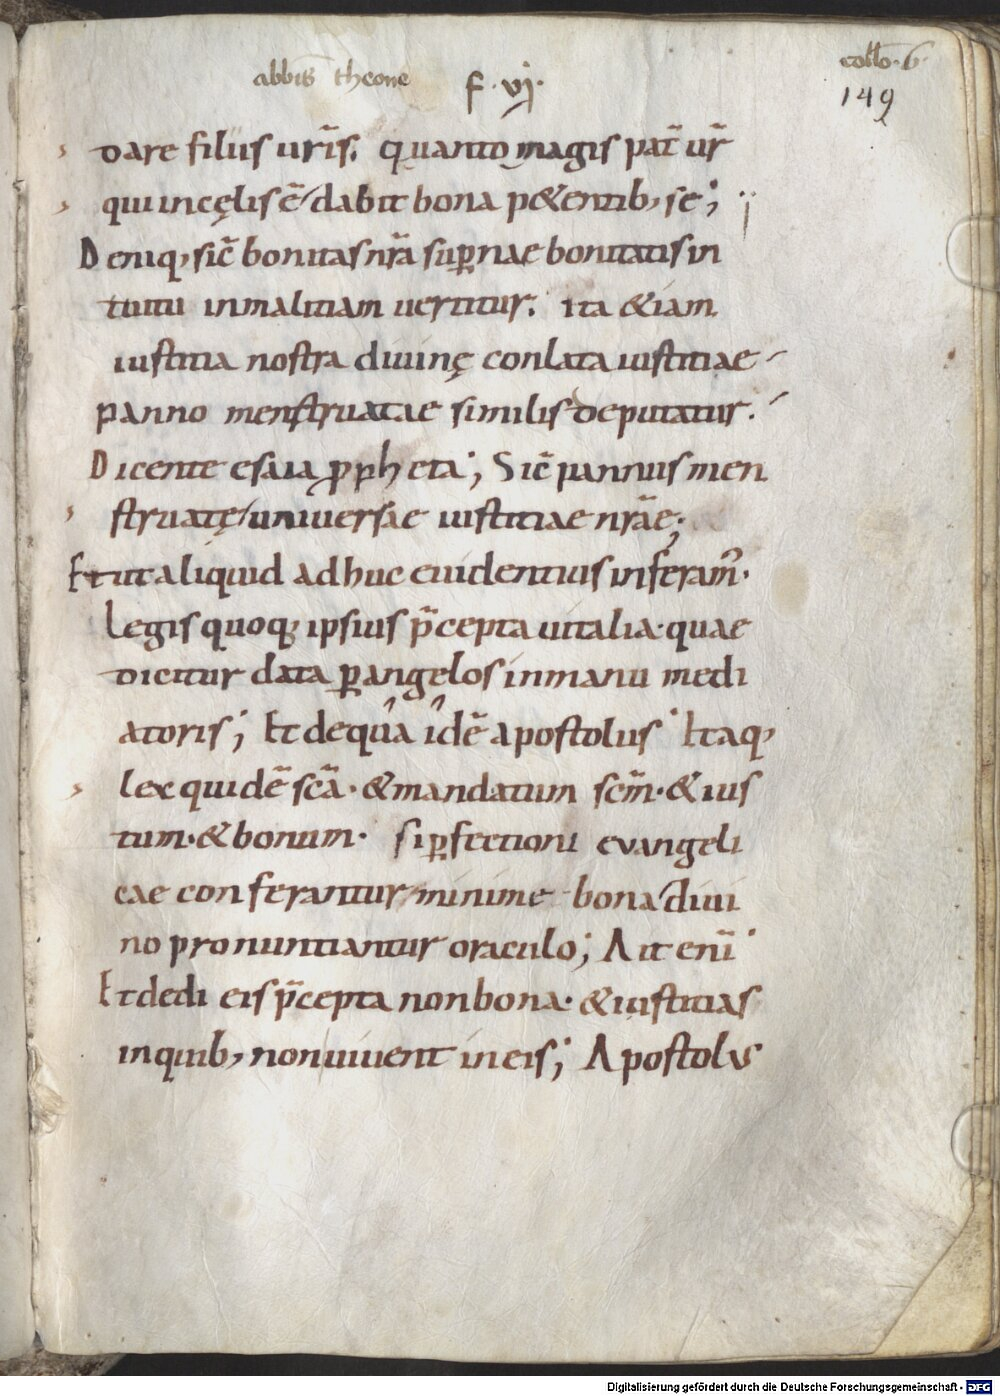 abbis theone f. vj. collo. 6.
149
dare filiis ur̃is. quanto magis pat̃ ur̃
qui in cęlis ẽ / dabit bona p&entib, se;
Deniq, sic̃ bonitas nr̃a sup̱nae bonitatis in
tuitu in malitiam uertitur. ita &iam
iustitia nostra diuinę conlata iustitiae
panno menstruatae similis deputatur.
Dicente esaia propheta; Sic̃ pannus men
struatę / uniuersae iustitiae nr̃ae;
Et ut aliquid adhuc euidentius inferam̃.
Legis quoq, ipsius p̃cepta uitalia. quae
dicitur data p̱ angelos in manu medi
atoris; Et de qua idẽ apostolus Itaq,
lex quidẽ sc̃a. & mandatum sc̃m. & ius
tum. & bonum. si p̱fectioni euangeli
cae conferantur / minime bona / diui
no pronuntiantur oraculo; Ait eni̅
Et dedi eis p̃cepta non bona. & iustitias
in quib, non uiuent in eis; Apostolus
Digitalisierung gefördert durch die Deutsche Forschungsgemeinschaft - DFG